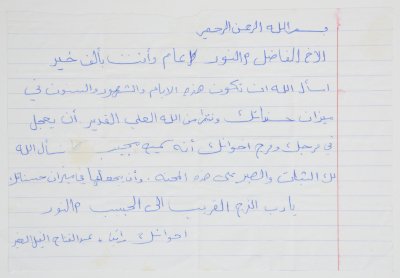 بسم الله الرحمن الرحيم
الأخ الفاضل / النور / عام وأنت بألف خير
اسأل الله ان تكون هذه الايام والشهور والسنون في
ميزان حسناتك ونتضرع من الله العلي القدير أن يعجل
في فرجك وفرج اخوانك أنه سميع مجيب / نسأل الله
لك الثبات والصبر على هذه المحنة. وأن يجعلها في ميزان حسناتك
يا رب الفرج القريب الى الحبيب / النور
اخوانك عبد الفتاح